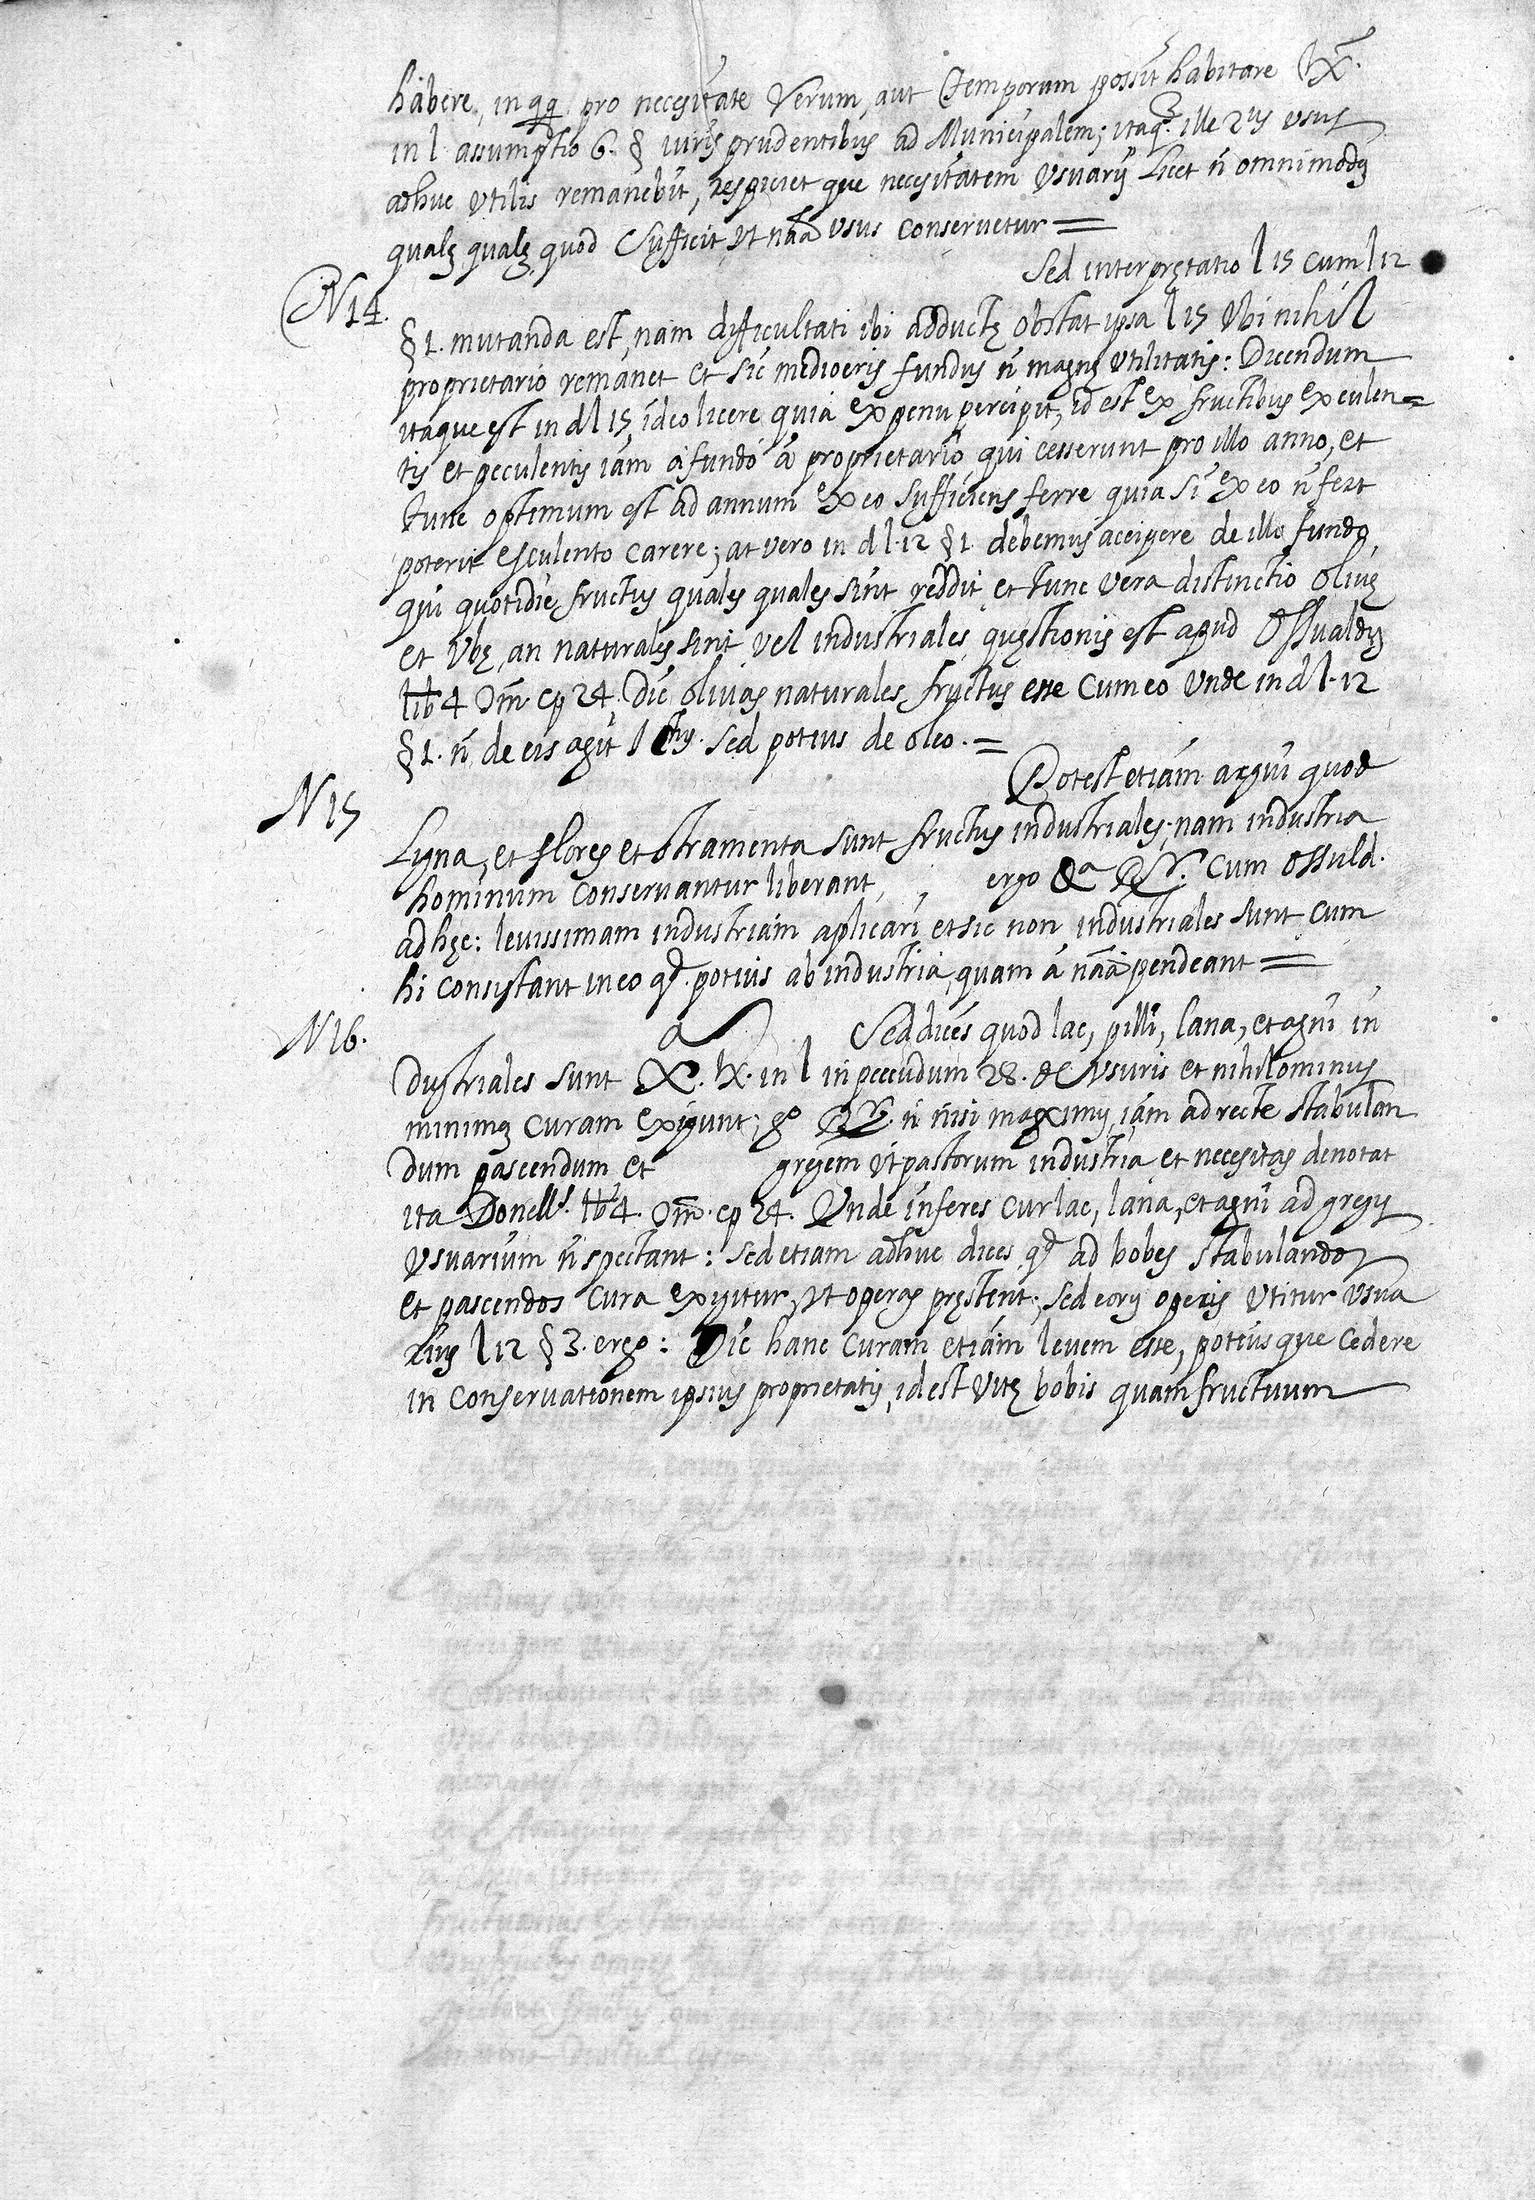 habere, in qq pro necesitate Verum, aut temporum possit habitare tx.
in l assumptio 6. § iuris prudentibus ad Municipalem; itaq. ille 2us usus
adhuc Utilis remanebit, respiciet que necesitatem Usuarij Licet ñ omnimodę
qualę qualę quod Sufficit Ut nãa usus conservetur =
Sed interprętatio l 15 cum l 12
N 14.
§ 1. mutanda est, nam difficultati ibi adductę obstat ipsa l 15 Ubi nihil
proprietario remanet et sic mediocris fundus ñ magnę Utilitatis: Dicendum
itaque est in d l 15, ideo licere quia ex penu percipit, id est ex fructibus exculen=
tis et peculentis iam a fundo a proprietario qui cesserunt pro illo anno, et
tunc optimum est ad annum ex eo sufficiens ferre quia si ex eo ñ fert
poterit esculento carere; at vero in d l. 12 § 1. debemus accipere de illo fundo,
qui quotidie, fructus quales quales sint reddit, et tunc vera distinctio olivę
et Ubę, an naturales sint vel industriales quęstionis est apud Ossualdų
lib 4 Om̃. cp 24. Dic olivas naturales fructus esse cum eo Unde in d l. 12
§ 1. ñ de eis agit l sed potius de oleo. =
Potest etiam argui quod
N 15
Lyna, et flores et stramenta sunt fructus industriales; nam industria
hominum conservantur liberant, ergo &a Rr. cum Ossuld.
ad hęc: levissimam industriam aplicari et sic non industriales sunt cum
hi consistant in eo qd. potius ab industria, quam a nãa pendeant =
N 16.
a Sed dices quod lac, pilli, lana, et agni in
dustriales sunt X. tx. in l in peccudum 28. de Usuris et nihilominus
minimą curam exigunt; go Rr. ñ nisi maximų, iam ad recte stabulan
dum pascendum et gregem Ut pastorum industria et necesitas denotat
ita Donells. lib 4. Om̃. cp 24. Unde inferes cur lac, lana, et agni ad gregis
Usuarium ñ spectant: sed etiam adhuc dices qd ad bobes stabulandos
et pascendos cura exigitur, Ut operas pręstent; sed eorų operis Utitur usua
rius l 12 § 3. ergo: Dic hanc curam etiam levem esse, potius que cedere
in conservationem ipsius proprietatis, id est Vitę bobis quam fructuum